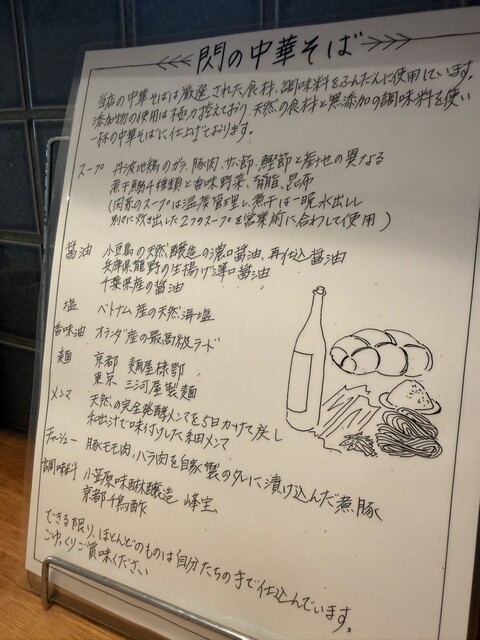 閃の中華そば
当店の中華そばは厳選された食材、調味料をふんだんに使用しています。
添加物の使用は極力控えており、天然の食材と無添加の調味料を使い
一杯の中華そばに仕上げております。
スープ 丹波地鶏のガラ、豚肉、サバ節、鰹節と産地の異なる
煮干鰯4種類と香味野菜、背脂、昆布
(肉系のスープは温度管理し、煮干は一晩水出し
別々に炊き出した2つのスープを営業前に合わして使用)
醤油 小豆島の天然醸造の濃口醤油、再仕込醤油
兵庫県龍野の生揚げ薄口醤油
千葉県産の醤油
塩 ベトナム産の天然海塩
香味油 オランダ産の最高級ラード
麺 京都 麺屋棣鄂
東京 三河屋製麺
メンマ 天然の完全発酵メンマを5日かけて戻し
和出汁で味付けした細メンマ
チャーシュー 豚モモ肉、バラ肉を自家製のタレに漬け込んだ煮豚
調味料 小笠原味醂醸造 峰宝
京都千鳥酢
できる限り、ほとんどのものは自分たちの手で仕込んでいます。
ごゆっくりご賞味ください